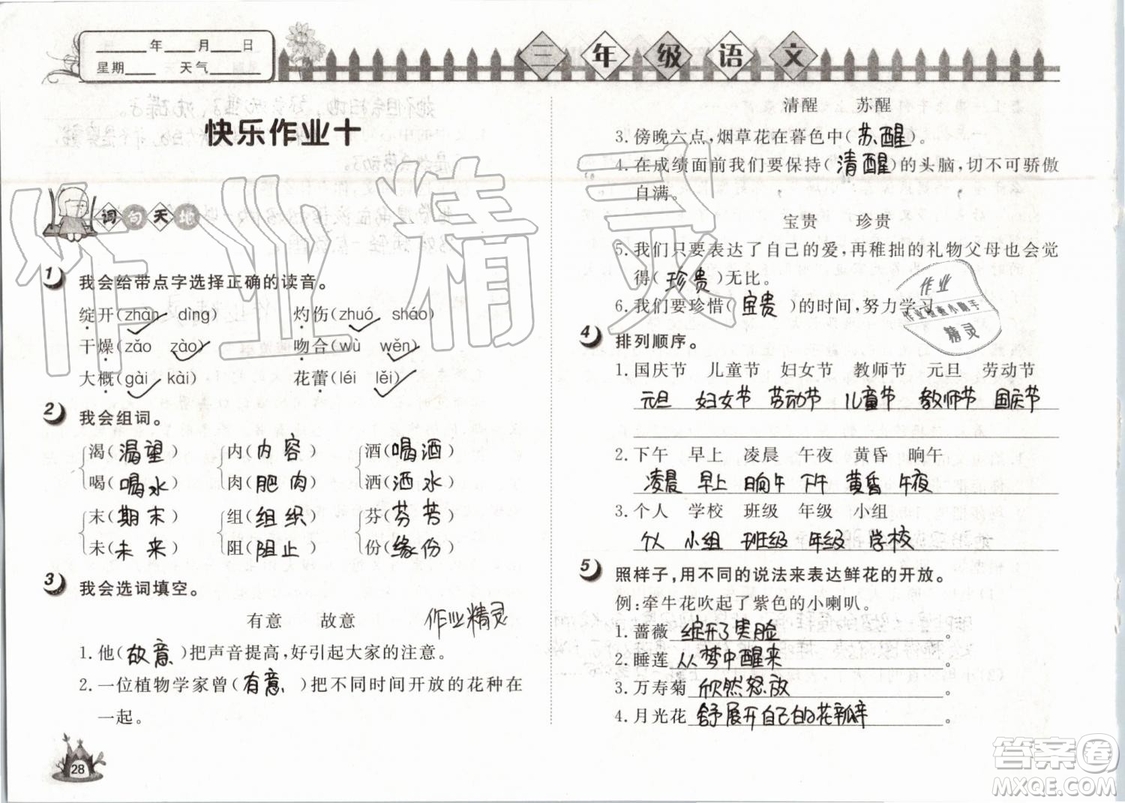 ____年____月____日
星期____ 天气____
三年级语文
快乐作业十
词句天地
1 我会给带点字选择正确的读音。
绽开(zhàn dìng) 灼伤(zhuó sháo)
干燥(zǎo zào) 吻合(wù wěn)
大概(gài kài) 花蕾(léi lěi)
2 我会组词。
渴(渴望) 内(内容) 酒(喝酒)
喝(喝水) 肉(肥肉) 洒(洒水)
末(期末) 组(组织) 芬(芬芳)
未(未来) 阻(阻止) 份(缘份)
3 我会选词填空。
有意 故意
作业精灵
1.他(故意)把声音提高,好引起大家的注意。
2.一位植物学家曾(有意)把不同时间开放的花种在
一起。
28
清醒 苏醒
3.傍晚六点,烟草花在暮色中(苏醒)。
4.在成绩面前我们要保持(清醒)的头脑,切不可骄傲
自满。
宝贵 珍贵
5.我们只要表达了自己的爱,再稚拙的礼物父母也会觉
得(珍贵)无比。
6.我们要珍惜(宝贵)的时间,努力学习。
4 排列顺序。
1.国庆节 儿童节 妇女节 教师节 元旦 劳动节
元旦 妇女节 劳动节 儿童节 教师节 国庆节
2.下午 早上 凌晨 午夜 黄昏 晌午
凌晨 早上 晌午 下午 黄昏 午夜
3.个人 学校 班级 年级 小组
个人 小组 班级 年级 学校
5 照样子,用不同的说法来表达鲜花的开放。
例:牵牛花吹起了紫色的小喇叭。
1.蔷薇 绽开了笑脸
2.睡莲 从梦中醒来
3.万寿菊 欣然怒放
4.月光花 舒展开自己的花瓣
作业精灵
作业
精灵
答案圈
MXQE.COM